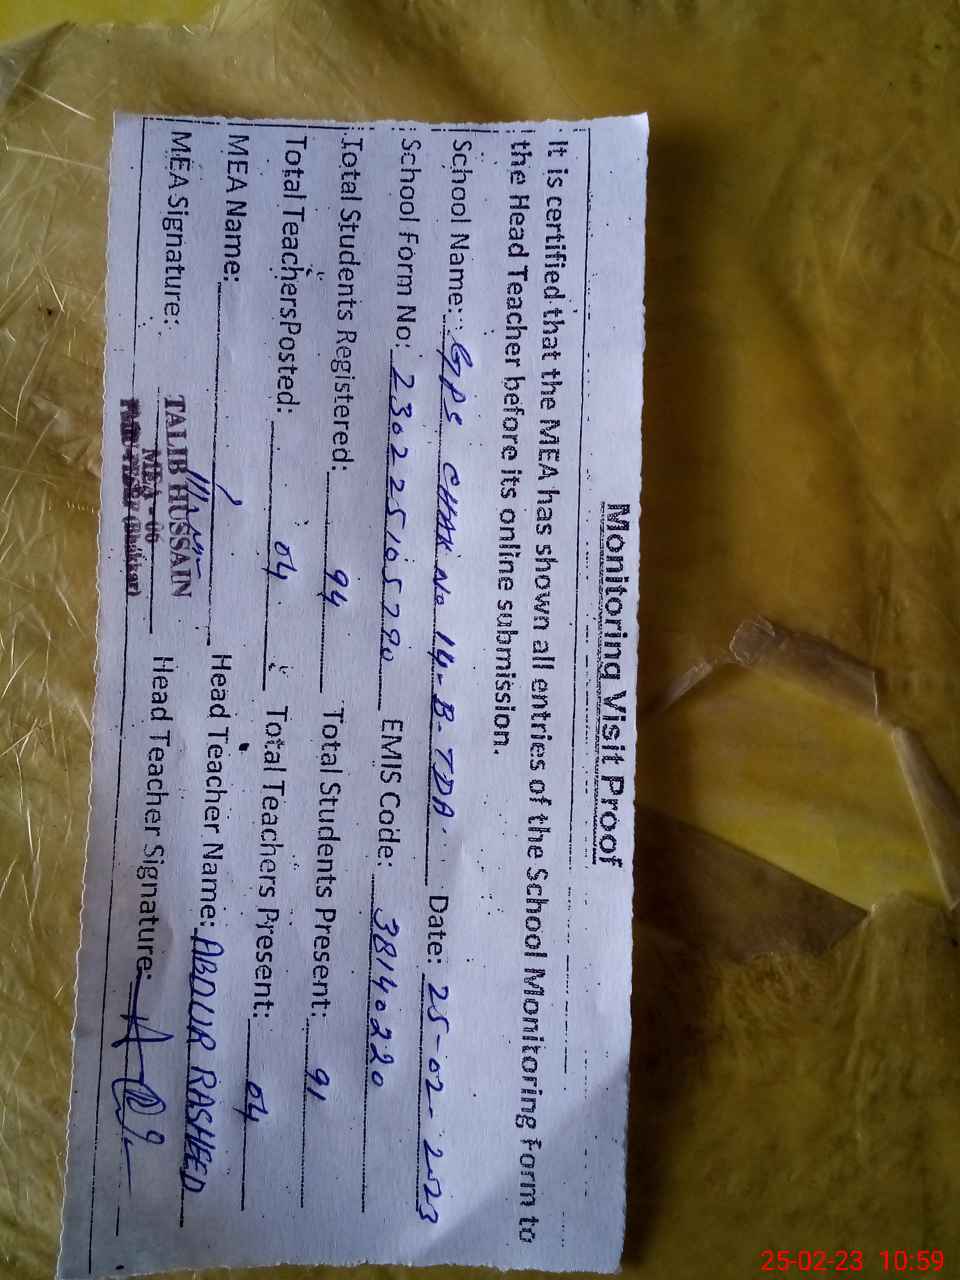 Monitoring Visit Proof
It is certified that the MEA has shown all entries of the School Monitoring Form to
the Head Teacher before its online submission.
School Name: GPS CHAK No 14-B-TDA Date: 25-02-2023
School Form No: 230225105790 EMIS Code: 38140220
Total Students Registered: 94 Total Students Present: 91
Total Teachers Posted: 04 Total Teachers Present: 04
MEA Name: Head Teacher Name: ABDUR RASHEED
MEA Signature: Head Teacher Signature:
TALIB HUSSAIN
MEA - 06
(Bhakkar)
25-02-23 10:59